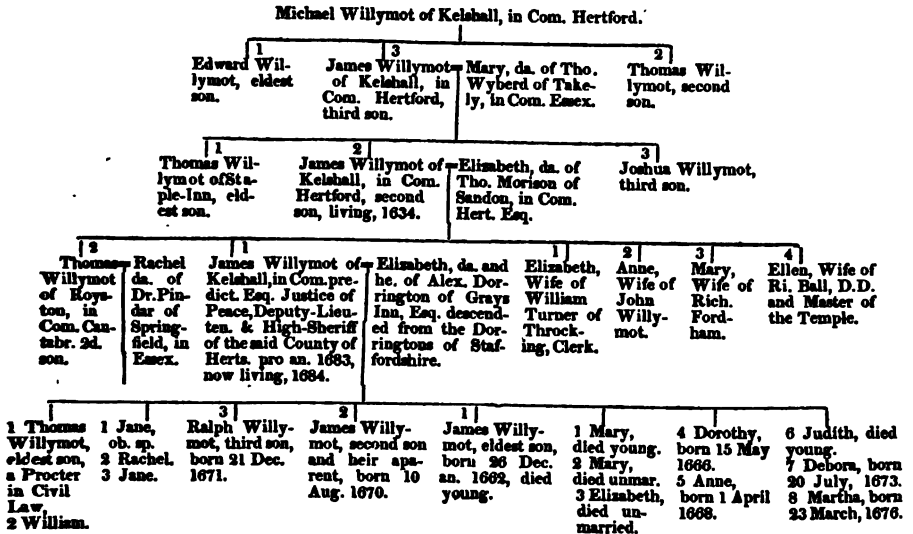 Michael Willymot of Kelshall, in Com. Hertford.
1
Edward Wil-
lymot, eldest
son.
3
James Willymot
of Kelshall, in
Com. Hertford,
third son.
Mary, da. of Tho.
Wyberd of Take-
ly, in Com. Essex.
2
Thomas Wil-
lymot, second
son.
1
Thomas Wil-
lymot of Sta-
ple-Inn, eld-
est son.
2
James Willymot of
Kelshall, in Com.
Hertford, second
son, living, 1634.
Elisabeth, da. of
Tho. Morison of
Sandon, in Com.
Hert. Esq.
3
Joshua Willymot,
third son.
2
Thomas
Willymot
of Roys-
ton, in
Com. Can-
tabr. 2d.
son.
Rachel
da. of
Dr. Pin-
dar of
Spring-
field, in
Essex.
1
James Willymot of
Kelshall, in Com. pre-
dict. Esq. Justice of
Peace, Deputy-Lieu-
ten. & High-Sheriff
of the said County of
Herts. pro an. 1683,
now living, 1684.
Elizabeth, da. and
he. of Alex. Dor-
rington of Grays
Inn, Esq. descend-
ed from the Dor-
ringtons of Staf-
fordshire.
1
Elizabeth,
Wife of
William
Turner of
Throck-
ing, Clerk.
2
Anne,
Wife of
John
Willy-
mot.
3
Mary,
Wife of
Rich.
Ford-
ham.
4
Ellen, Wife of
Ri. Ball, D.D.
and Master of
the Temple.
1 Thomas
Willymot,
eldest son,
a Procter
in Civil
Law,
2 William.
1 Jane,
ob. sp.
2 Rachel.
3 Jane.
3
Ralph Willy-
mot, third son,
born 21 Dec.
1671.
2
James Willy-
mot, second son
and heir apa-
rent, born 10
Aug. 1670.
1
James Willy-
mot, eldest son,
born 26 Dec.
an. 1662, died
young.
1 Mary,
died young.
2 Mary,
died unmar.
3 Elizabeth,
died un-
married.
4 Dorothy,
born 15 May
1666.
5 Anne,
born 1 April
1668.
6 Judith, died
young.
7 Debora, born
20 July, 1673.
8 Martha, born
23 March, 1676.